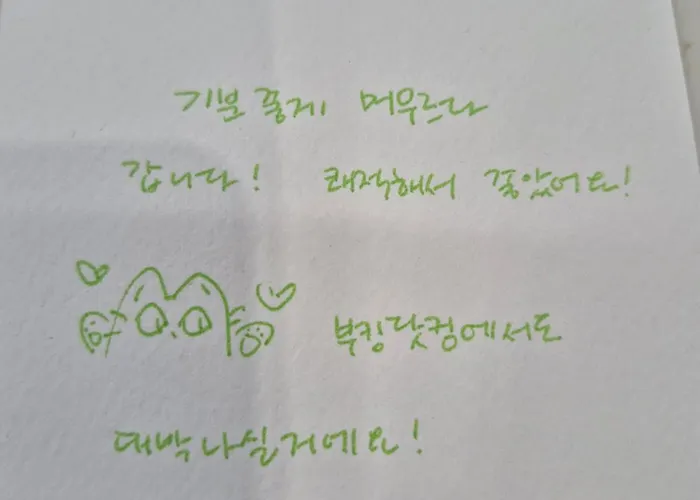 기분 좋게 머무르다
갑니다! 쾌적해서 좋았어요!
부킹닷컴에서도
대박나실거에요!